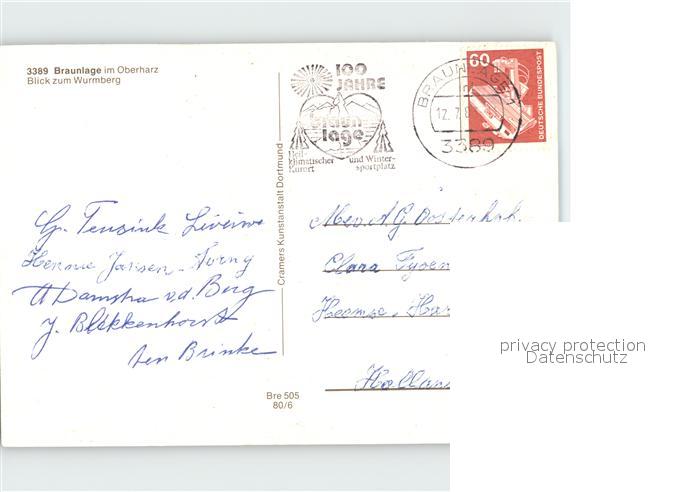 3389 Braunlage im Oberharz
Blick zum Wurmberg
100
JAHRE
braun
lage
Heil-
klimatischer
Kurort
und Winter-
sportplatz
BRAUNLAGE 1
12.7.8
3389
60
DEUTSCHE BUNDESPOST
Cramers Kunstanstalt Dortmund
Gr. Tensink
Hennie Jansen
Damstra v.d. Berg
J. Blekkenhorst
ten Brinke
Mev. A.G. Oosterh
Clara
Heemse. Har
Hollan
Bre 505
80/6
privacy protection
Datenschutz